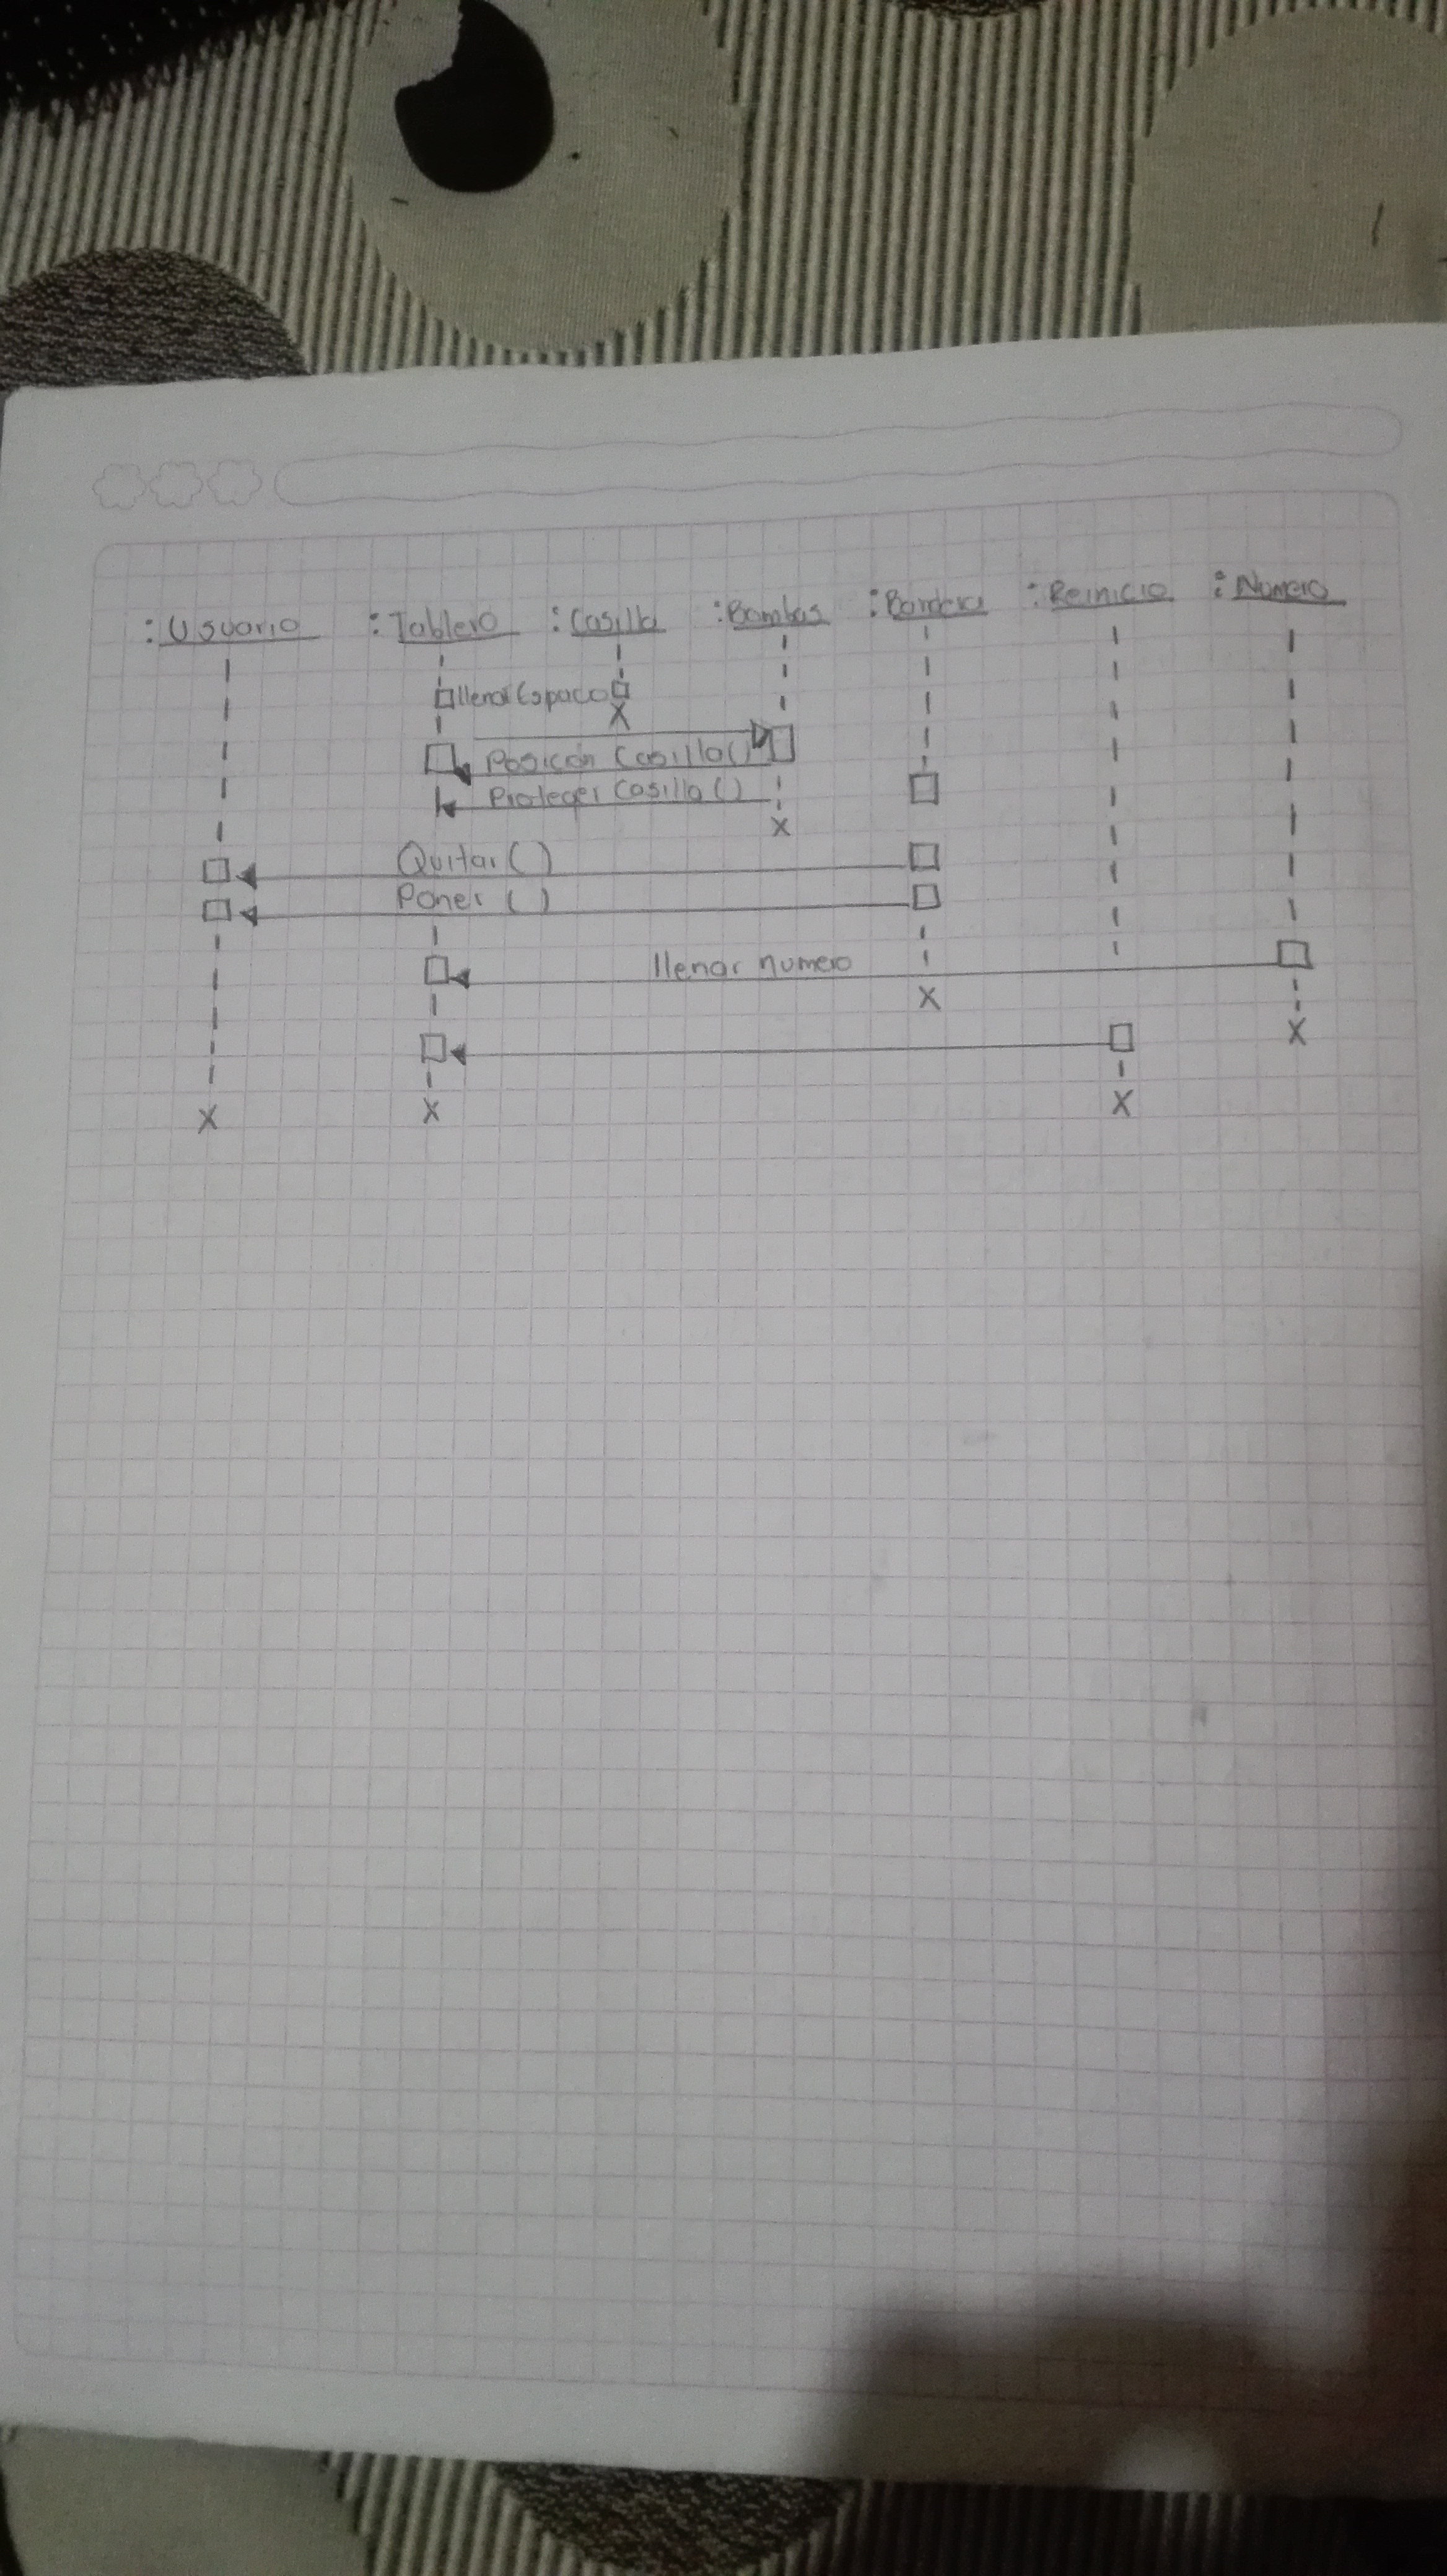 :Usuario :Tablero :Casilla :Bombas :Bandera :Reinicio :Numero
llenarEspacio
Posición Casilla()
Proteger Casilla()
Quitar()
Poner ()
llenar numero
X
X
X
X
X
X
X